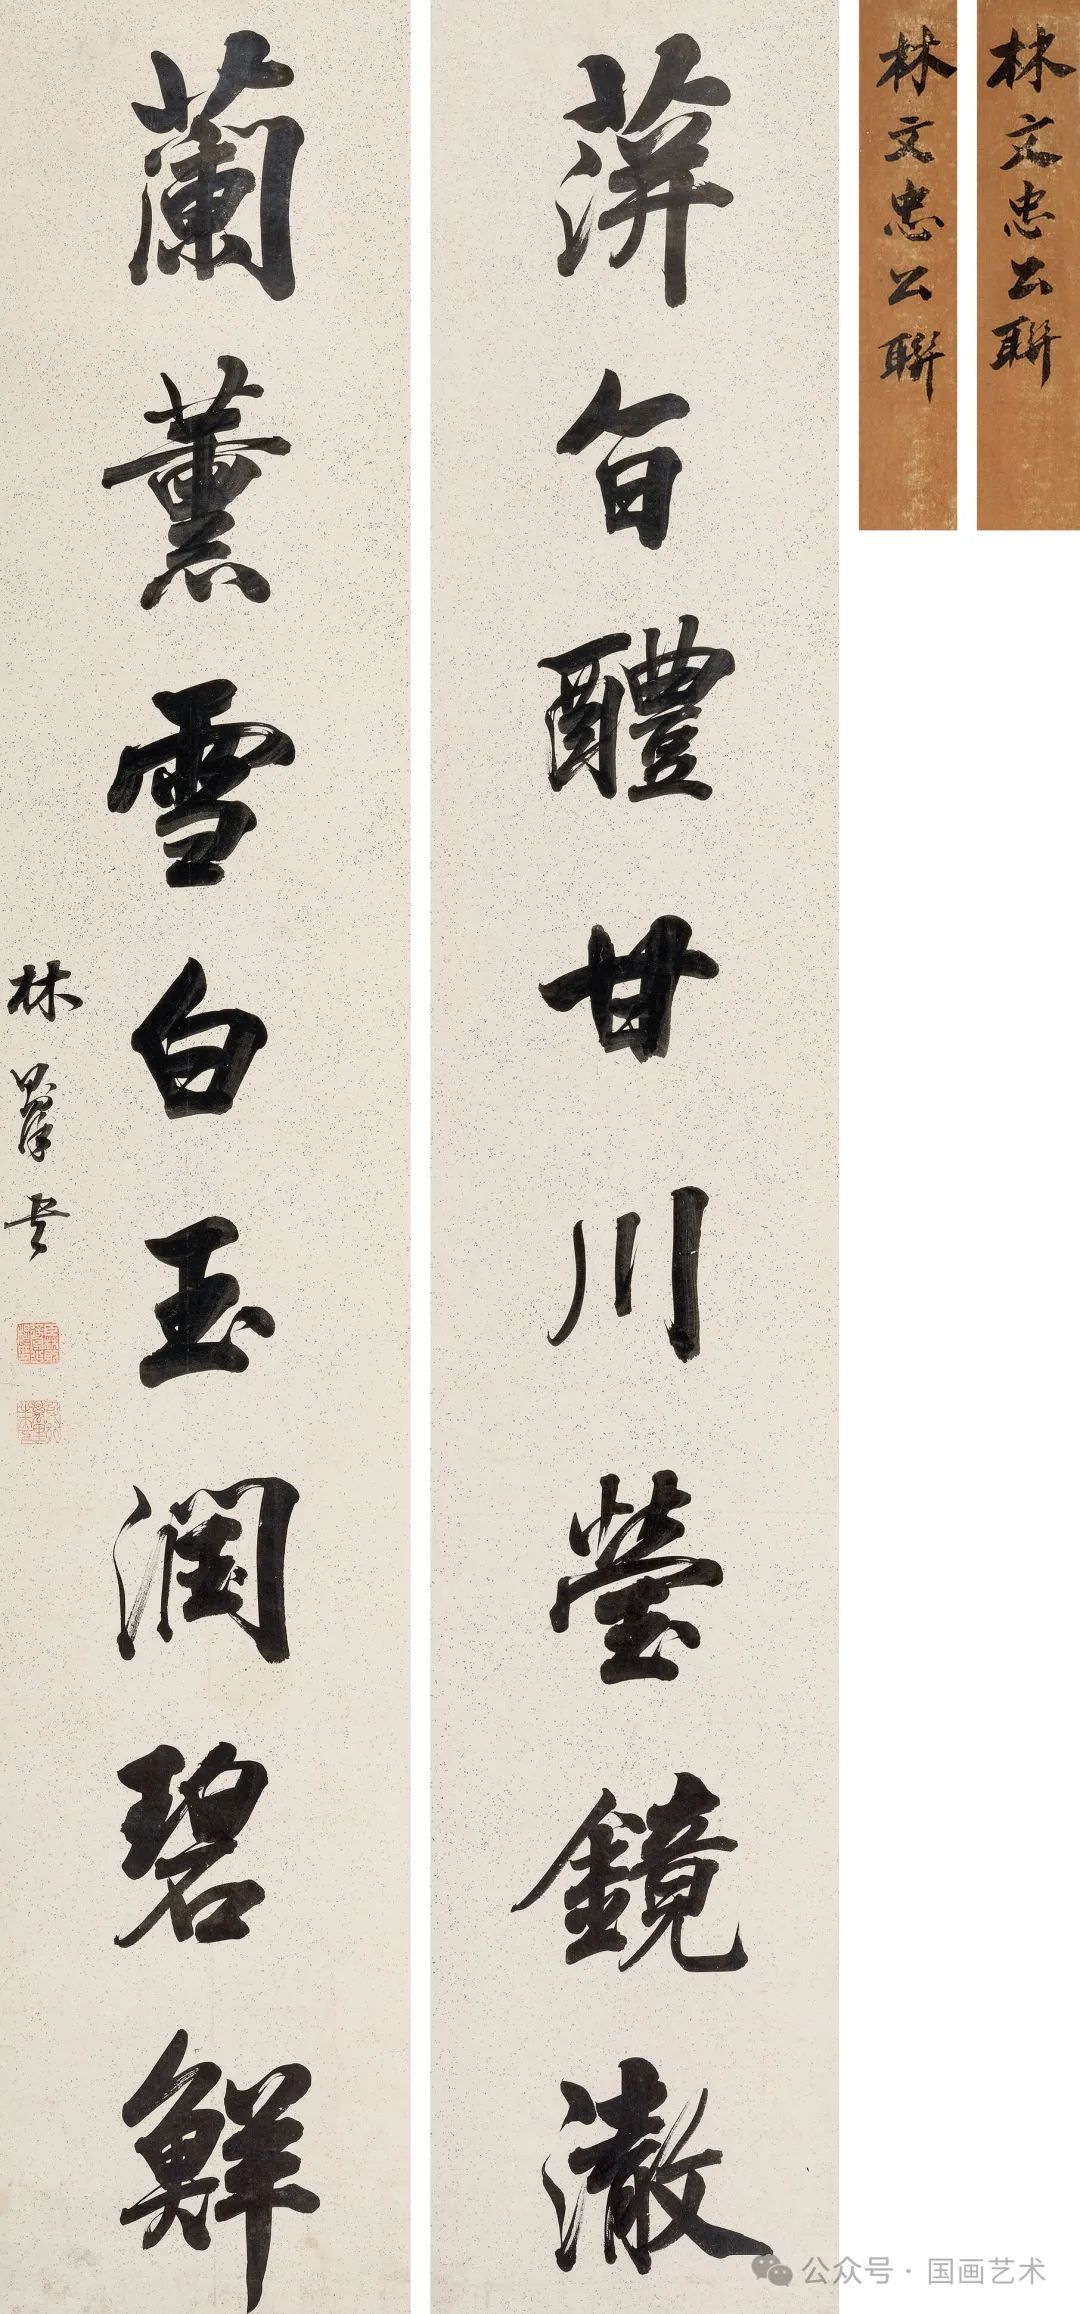 林文忠公聯
林文忠公聯
萍旨醴甘川瑩鏡澈
蘭薰雪白玉潤碧鮮
林則徐
公众号·国画艺术